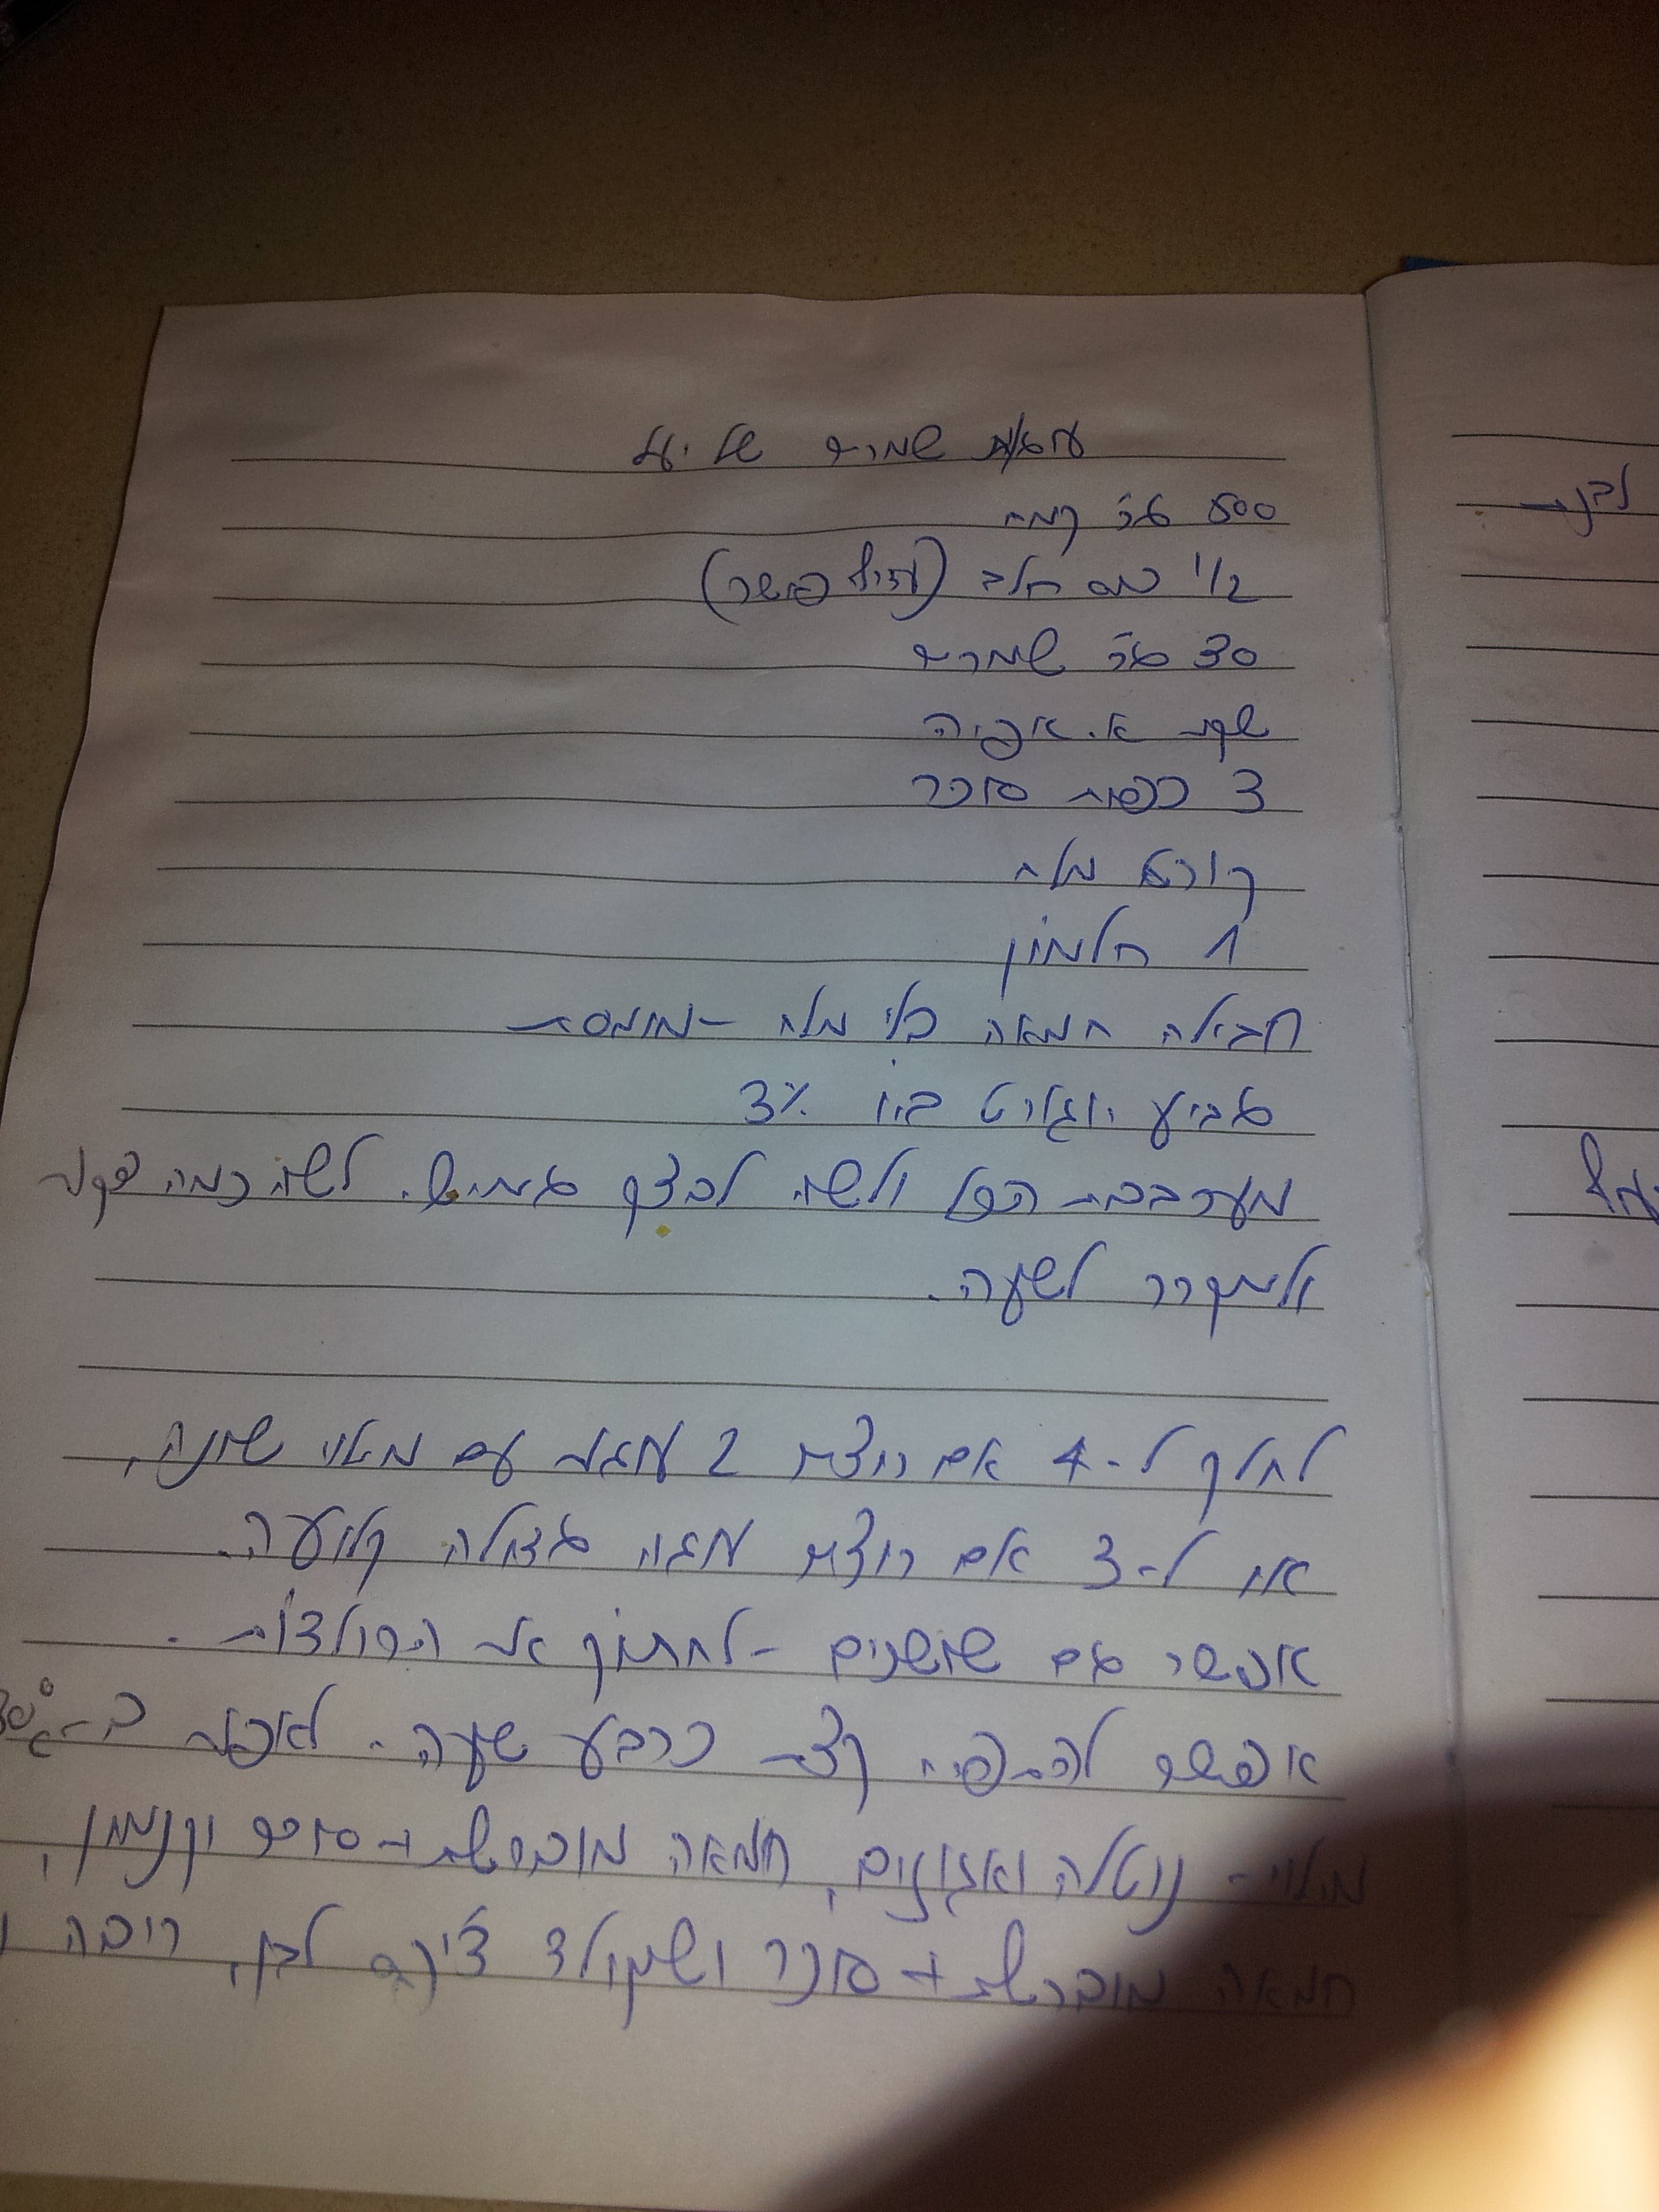 עוגת שמרים של יעל
500 גר' קמח
1/2 כוס חלב (עדיף פושר)
30 גר' שמרים
שקית א. אפיה
3 כפות סוכר
קורט מלח
1 חלמון
חבילה חמאה בלי מלח - מומסת
גביע יוגורט ביו 3%
מערבבים הכל ולשים לבצק גמיש. לשים כמה דקות
ולמקרר לשעה.
לחלק ל-4 אם רוצים 2 עוגות עם מילוי שונה,
או ל-3 אם רוצים עוגה גדולה קלועה.
אפשר גם שושנים - לחתוך את הרולדות.
אפשר להתפיח קצת כרבע שעה. לאפות ב-
מילוי - נוטלה ואגוזים, חמאה מוברשת + סוכר וקנמון,
חמאה מוברשת + סוכר ושוקולד צ'יפס לבן, ריבה ו
לבנת